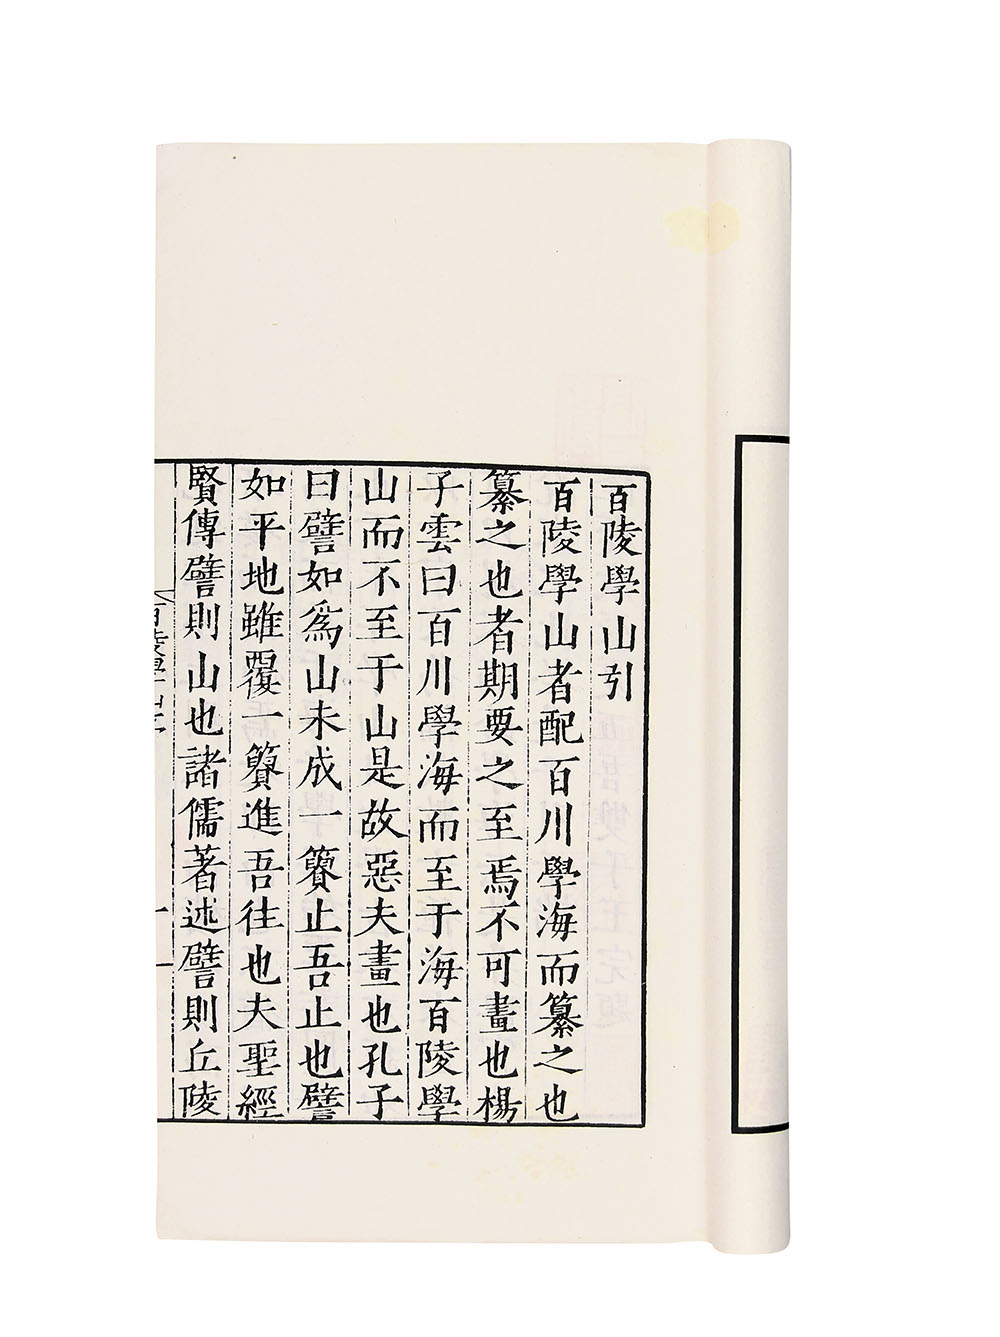 百陵學山引
百陵學山者配百川學海而纂之也
纂之也者期要之至焉不可畫也楊
子雲曰百川學海而至于海百陵學
山而不至于山是故惡夫畫也孔子
曰譬如爲山未成一簣止吾止也譬
如平地雖覆一簣進吾往也夫聖經
賢傳譬則山也諸儒著述譬則丘陵